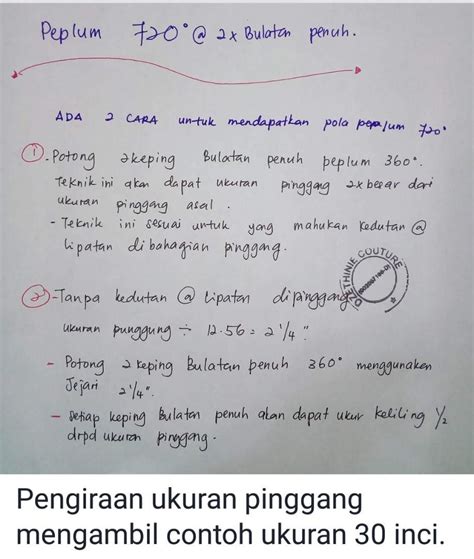 Peplum 720° @ 2x Bulatan penuh.
ADA 2 CARA un-tuk mendapatkan pola peplum 720°
①. Potong 2keping Bulatan penuh peplum 360°.
Teknik ini akan dapat ukuran pinggang 2x besar dari
ukuran pinggang asal.
- Teknik ini sesuai untuk yang mahukan kedutan @
lipatan di bahagian pinggang.
②-Tanpa kedutan @ lipatan di pinggang
ukuran punggung ÷ 12.56 = 2 1/4"
- Potong 2 keping Bulatan penuh 360° menggunakan
Jejari 2 1/4".
- Setiap keping Bulatan penuh akan dapat ukur keliling 1/2
drpd ukuran pinggang.
COUTURE
Pengiraan ukuran pinggang
mengambil contoh ukuran 30 inci.